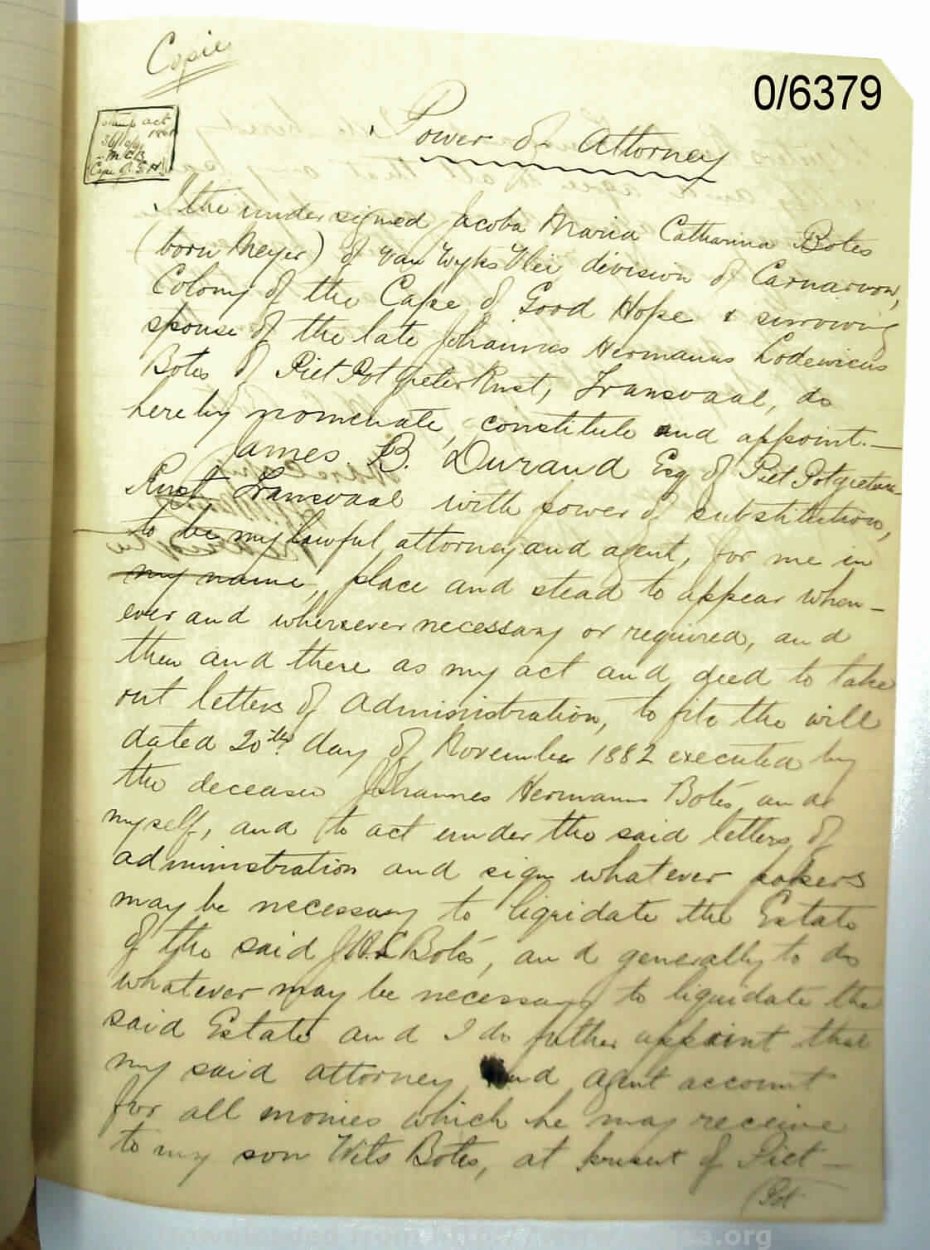 Copie
0/6379
Stamp act
Cape of G. H.
Power of Attorney
I the undersigned Jacoba Maria Catharina Botes
(born Meyer) of Van Wyks Vlei division of Carnarvon,
Colony of the Cape of Good Hope & surviving
spouse of the late Johannes Hermanus Lodewicus
Botes of Piet Potgieter Rust, Transvaal, do
hereby nomenate, constitute and appoint.—
James B. Durand Esq of Piet Potgieters
Rust Transvaal with power of substitution,
to be my lawful attorney and agent, for me in
my name, place and stead to appear when-
ever and wheresever necessary or required, and
then and there as my act and deed to take
out letters of administration, to file the will
dated 20th day of November 1882 executed by
the deceased Johannes Hermanus Botes, and
myself, and to act under the said letters of
administration and sign whatever papers
may be necessary to liquidate the Estate
of the said J.H.L Botes, and generally to do
whatever may be necessary to liquidate the
said Estate and I do futher appoint that
my said attorney and agent account
for all monies which he may receive
to my son Wils Botes, at present of Piet—
(Pot